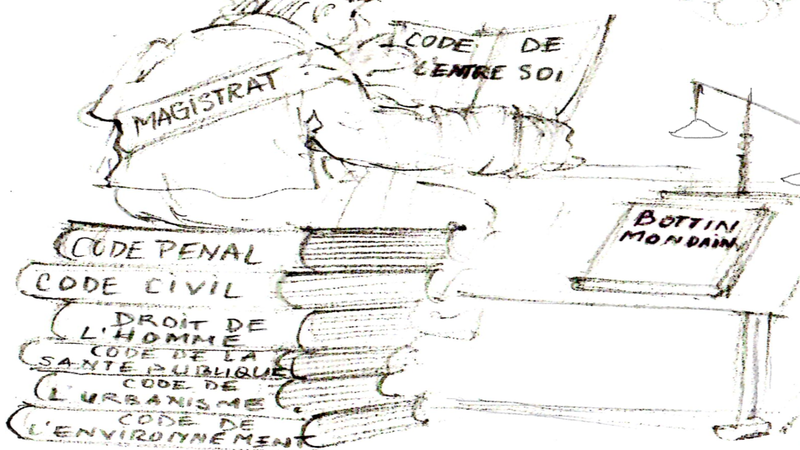 CODE DE
L'ENTRE SOI
MAGISTRAT
BOTTIN
MONDAIN
CODE PENAL
CODE CIVIL
DROIT DE
L'HOMME
CODE DE LA
SANTE PUBLIQUE
CODE DE
L'URBANISME
CODE DE
L'ENVIRONNEMENT